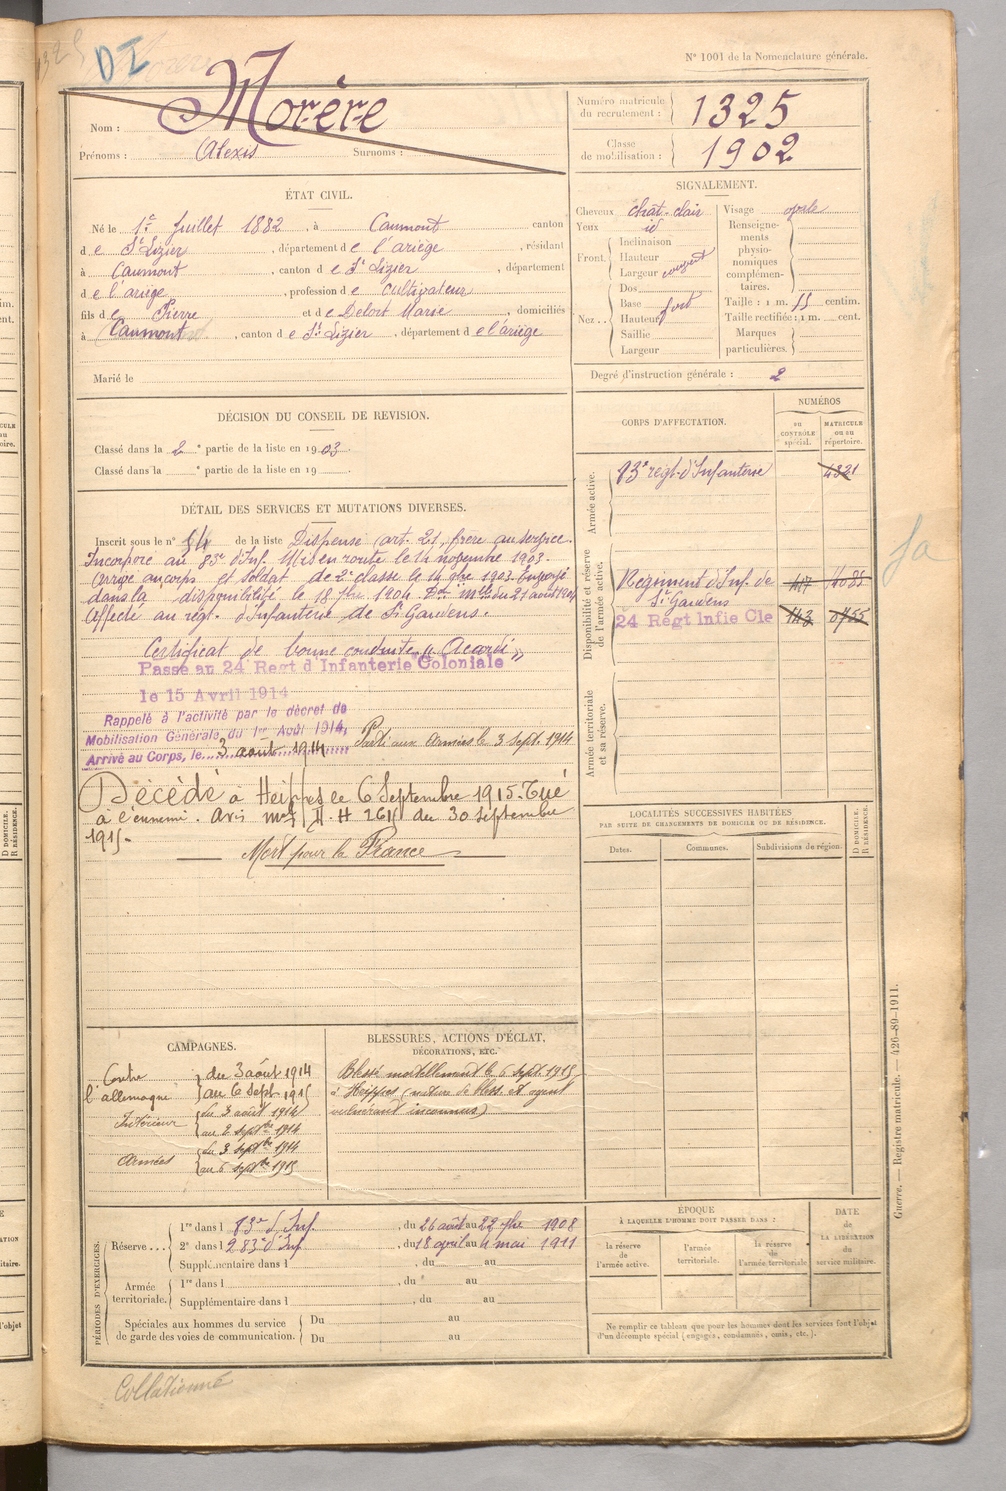 DI
N° 1001 de la Nomenclature générale.
Nom : Morère
Prénoms : Alexis Surnoms :
Numéro matricule du recrutement : 1325
Classe de mobilisation : 1902
ÉTAT CIVIL.
Né le 1er Juillet 1882, à Caumont canton
de St Lizier, département de l'ariège, résidant
à Caumont, canton de St Lizier, département
de l'ariège, profession de Cultivateur
fils de Pierre et de Delort Marie, domiciliés
à Caumont, canton de St Lizier, département de l'ariège
Marié le
SIGNALEMENT.
Cheveux chat-clair
Yeux id
Front. Inclinaison
Hauteur
Largeur couvert
Nez.. Dos
Base fort
Hauteur
Saillie
Largeur
Visage ovale
Renseignements physionomiques complémentaires.
Taille : 1 m. 55 centim.
Taille rectifiée : 1 m. cent.
Marques particulières.
Degré d'instruction générale : 2
DÉCISION DU CONSEIL DE REVISION.
Classé dans la 2e partie de la liste en 1903
Classé dans la e partie de la liste en 19
DÉTAIL DES SERVICES ET MUTATIONS DIVERSES.
Inscrit sous le n° 54 de la liste Dispensé (art. 21, frère au service.
Incorporé au 83e d'Inf. Mis en route le 14 novembre 1903.
Arrivé au corps et soldat de 2e classe le 14 9bre 1903. Envoyé
dans la disponibilité le 18 7bre 1904.
Affecté au régt. d'Infanterie de St Gaudens.
Certificat de bonne conduite « Accordé »
Passé au 24 Regt d'Infanterie Coloniale
le 15 Avril 1914
Rappelé à l'activité par le décret de
Mobilisation Générale du 1er Août 1914,
Arrivé au Corps, le 3 août 1914 Parti aux Armées le 3 Sept. 1914
Décédé à Heippes le 6 Septembre 1915. Tué
à l'ennemi. Avis du 30 Septembre
1915.
Mort pour la France
CORPS D'AFFECTATION.
NUMÉROS
au contrôle spécial.
MATRICULE ou au répertoire.
Armée active.
83e régt d'Infanterie 4321
Disponibilité et réserve de l'armée active.
Régiment d'Inf. de St Gaudens 4085
24 Régt Infie Cle 143 0755
Armée territoriale et sa réserve.
fa
LOCALITÉS SUCCESSIVES HABITÉES
PAR SUITE DE CHANGEMENTS DE DOMICILE OU DE RÉSIDENCE.
Dates. Communes. Subdivisions de région. D DOMICILE. R RÉSIDENCE.
CAMPAGNES.
Contre l'allemagne du 3 août 1914
au 6 Sept. 1915
Intérieur du 3 août 1914
au 2 septbre 1914
Armées du 3 septbre 1914
au 6 septbre 1915
BLESSURES, ACTIONS D'ÉCLAT,
DÉCORATIONS, ETC.
Blessé mortellement le 6 sept. 1915
à Heippes (nature de bless. et agent
vulnérant inconnus)
PÉRIODES D'EXERCICES.
Réserve... 1re dans l 83e d'Inf., du 26 août au 22 7bre 1908
2e dans l 283e d'Inf, du 18 avril au 4 mai 1911
Supplémentaire dans l du au
Armée territoriale. 1re dans l, du au
Supplémentaire dans l, du au
Spéciales aux hommes du service de garde des voies de communication. Du au
Du au
ÉPOQUE
À LAQUELLE L'HOMME DOIT PASSER DANS :
la réserve de l'armée active. l'armée territoriale. la réserve de l'armée territoriale
DATE de LA LIBÉRATION du service militaire.
Ne remplir ce tableau que pour les hommes dont les services font l'objet
d'un décompte spécial (engagés, condamnés, omis, etc.).
Guerre. — Registre matricule. — 426-89-1911.
Collationné